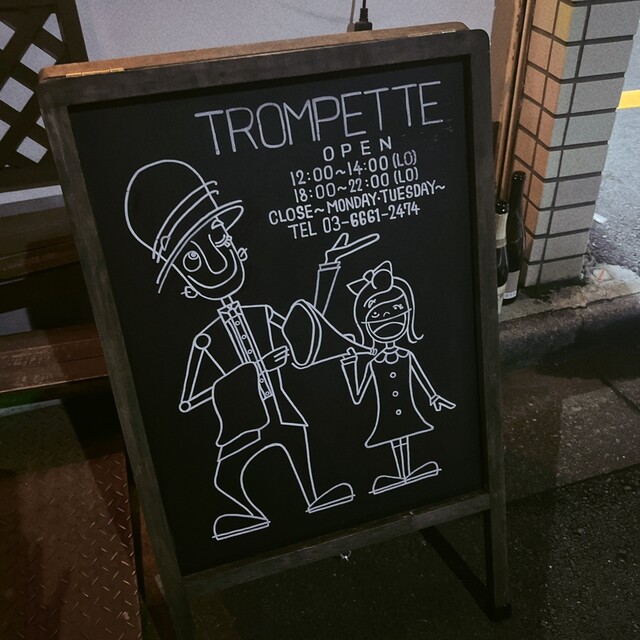 TROMPETTE
OPEN
12:00~14:00(LO)
18:00~22:00(LO)
CLOSE~MONDAY·TUESDAY~
TEL 03-6661-2474